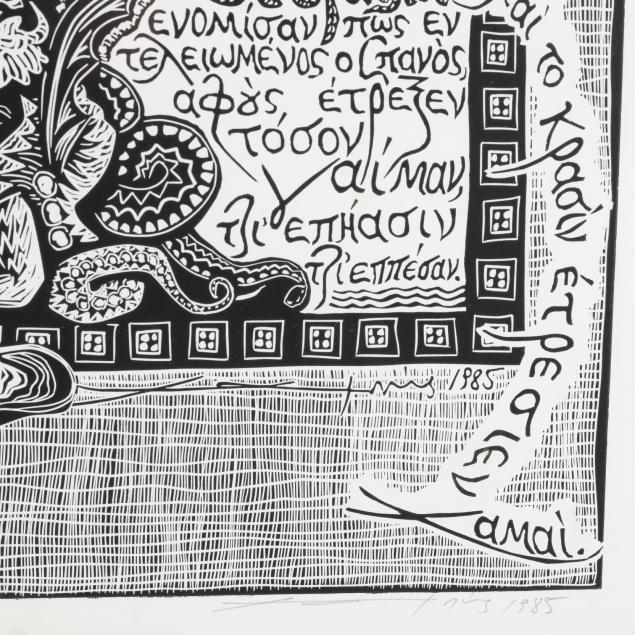 ενομίσαν πως εν
τελειωμένος ο Σπανὸς,
αφούς έτρεξεν
τόσον
γαίμαν,
τζι' επήασιν
τζι' εππέσαν.
αί το κρασὶν έτρεσιεν
χαμαὶ.
1985
1985